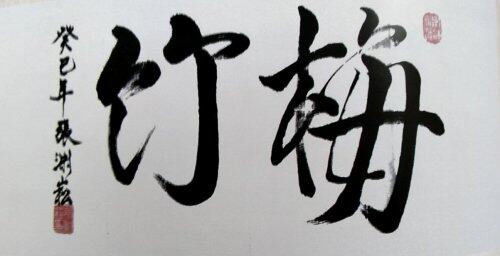 梅竹
癸巳年張渊崧